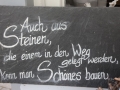 Auch aus
Steinen,
die einem in den Weg
gelegt werden,
kann man Schönes bauen